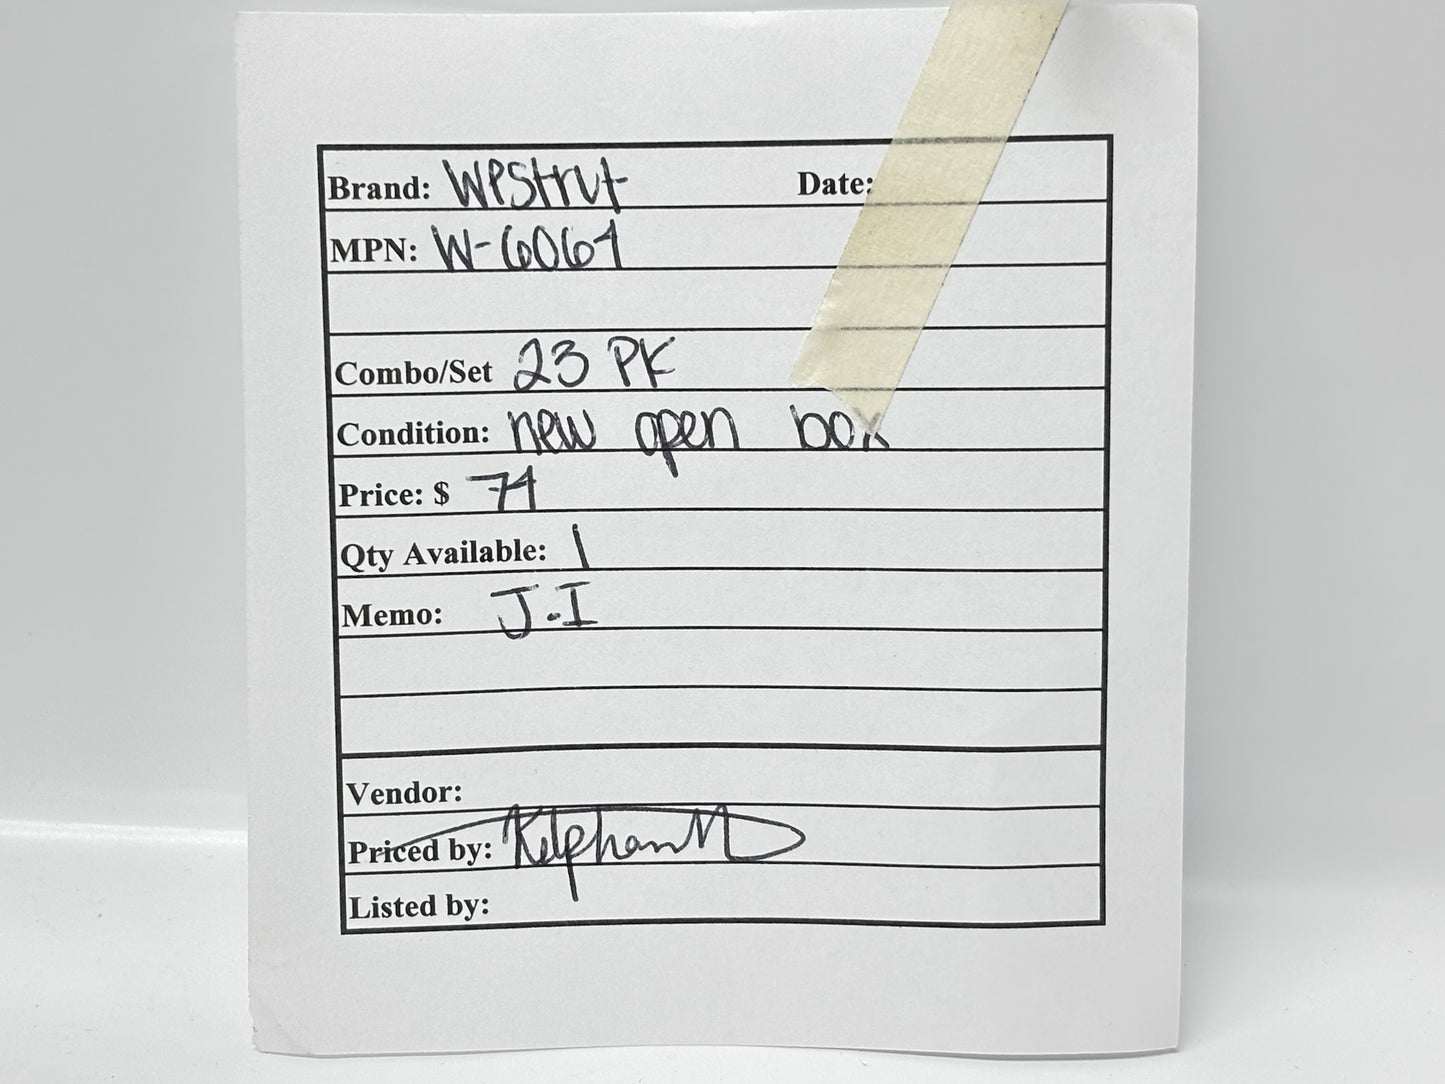 Brand: WPStrut Date:
MPN: W-6064
Combo/Set 23 PK
Condition: new open box
Price: $ 74
Qty Available: 1
Memo: J-I
Vendor:
Priced by:
Listed by: